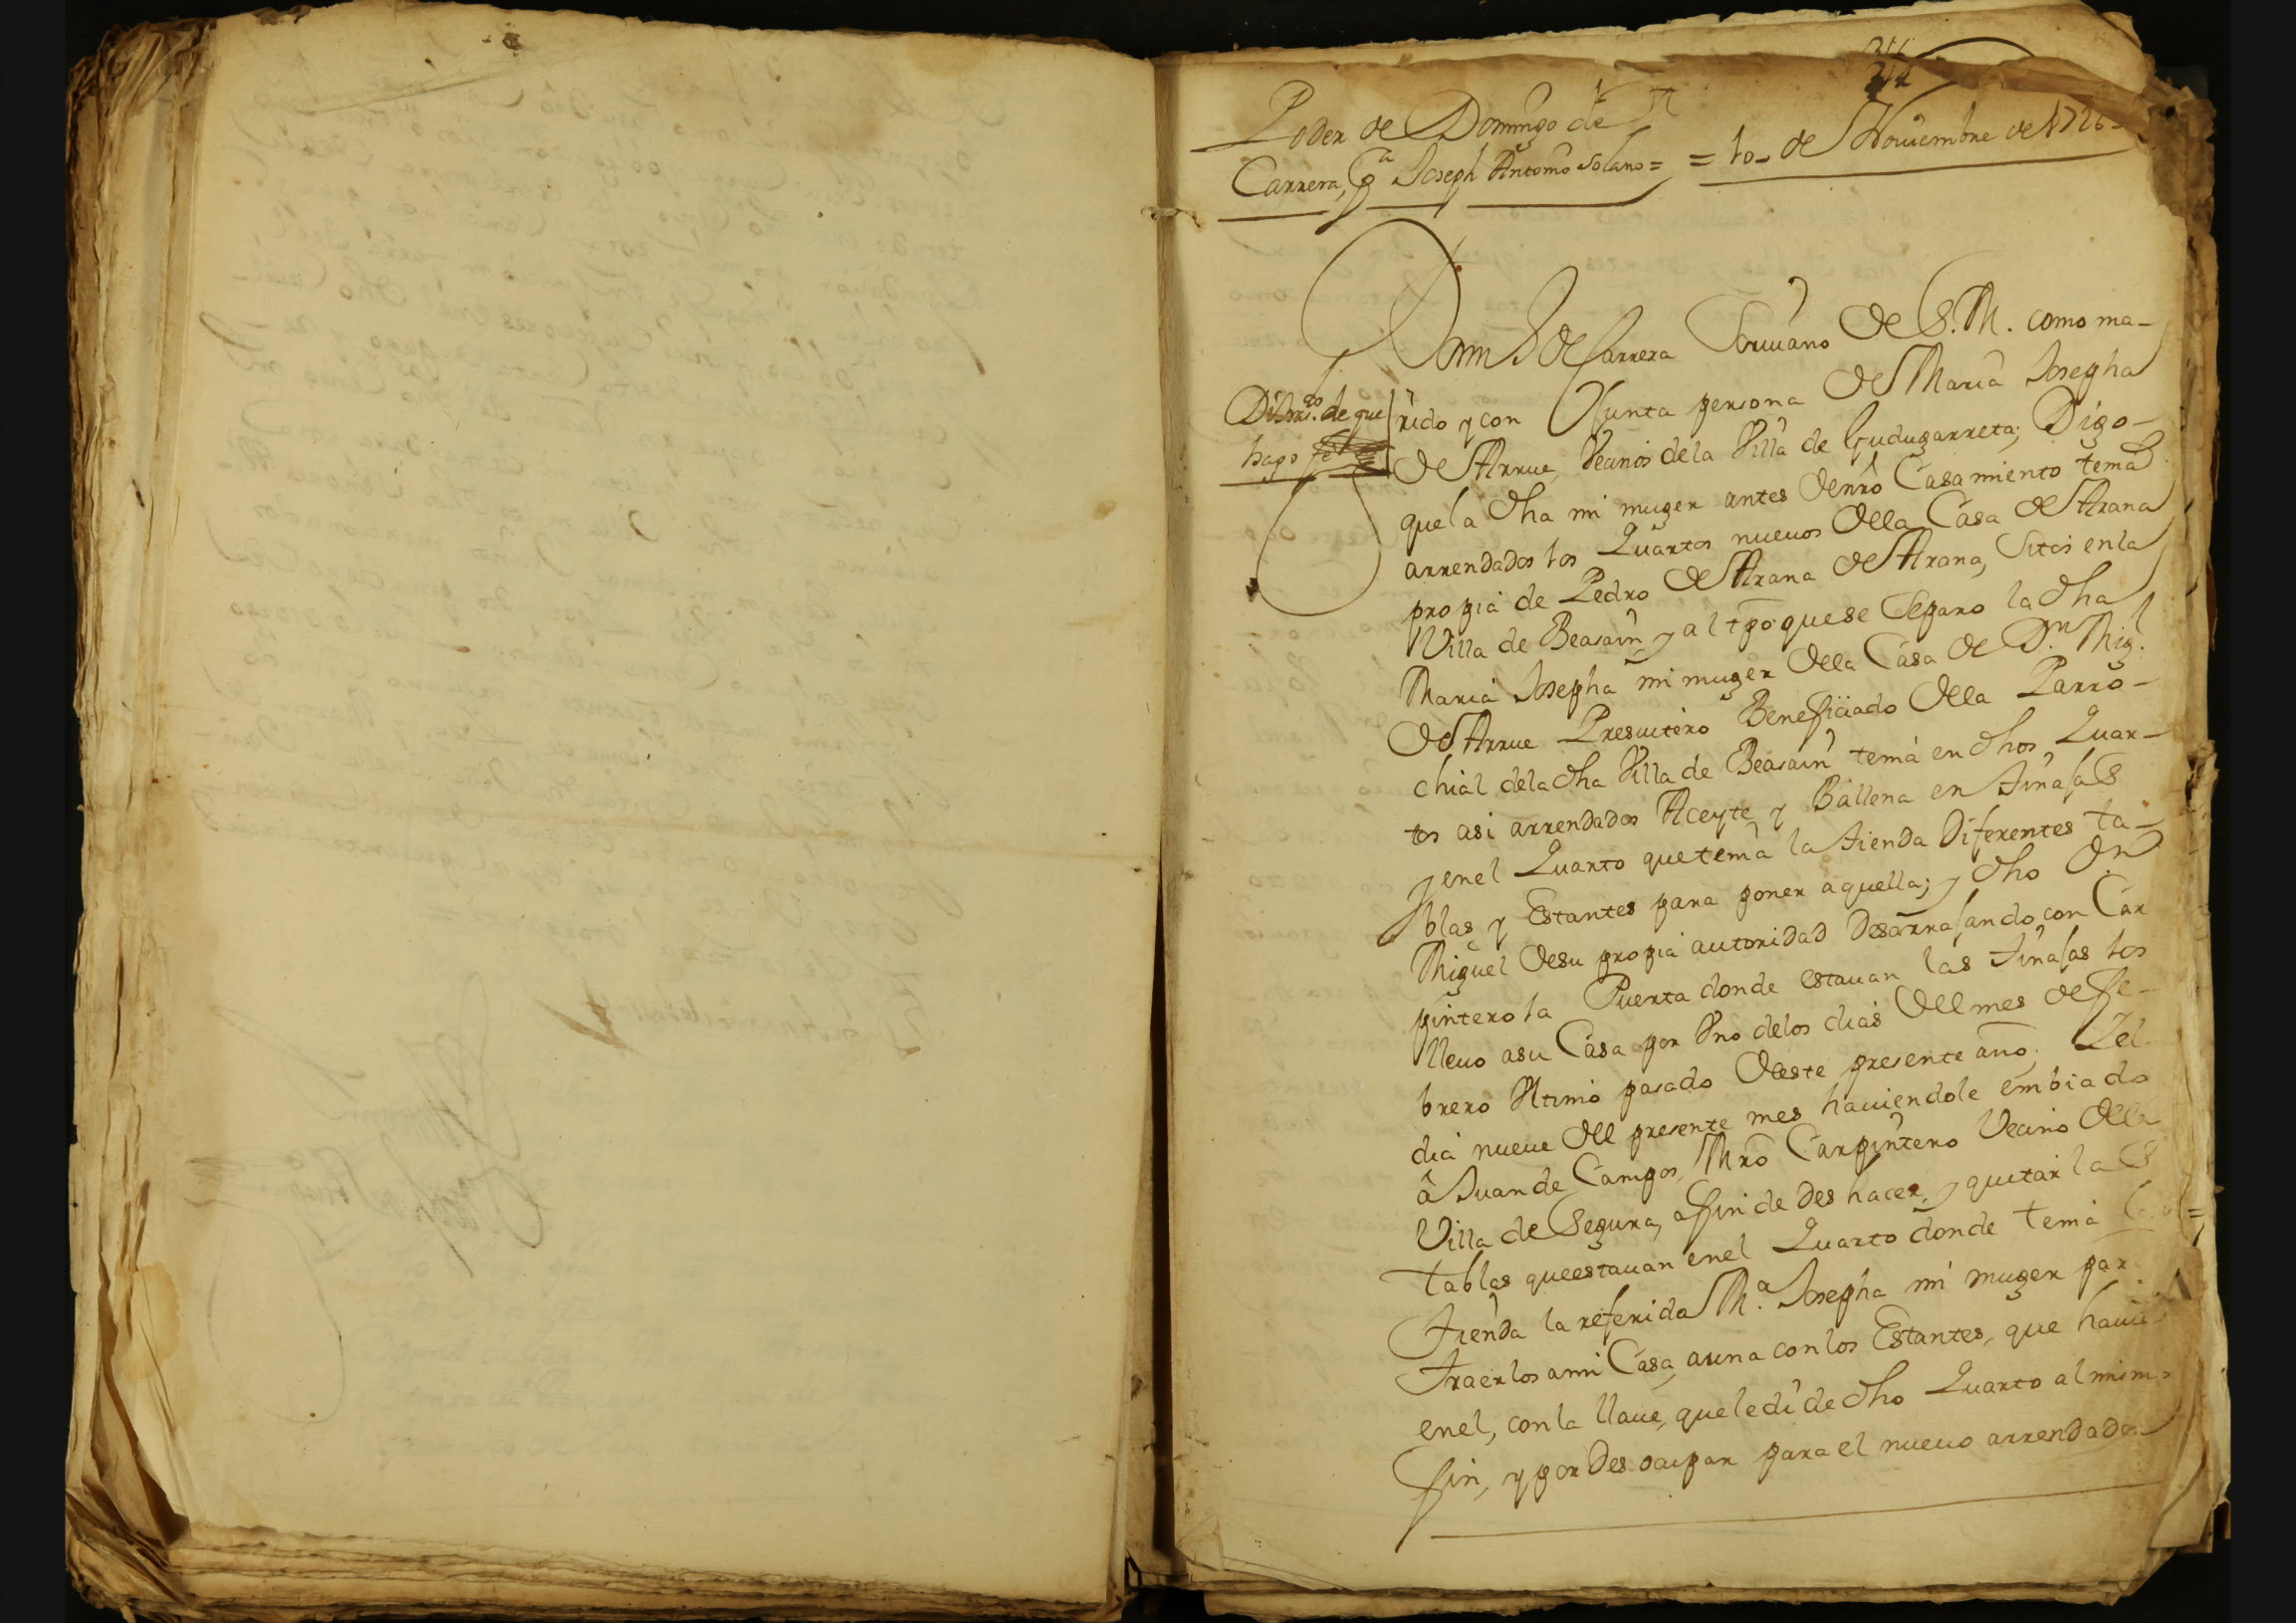 Poder de Domingo de
Carrera, pª Joseph Antonio Solano =
= 10 de Nouiembre de 1726
Domingo de Carrera Scriuano de S. M. como ma-
Di thros. de que
hago fe
rido y con Junta persona de Maria Josepha
de Arrue, Vecinos de la Villa de Gudugarreta; Digo
que la dha mi muger antes de nro Casamiento tenia
arrendados los Quartos nueuos de lla Casa de Arana
propia de Pedro de Arana de Arana, Sitos en la
Villa de Beasain, y al tpo que se Separo la dha
Maria Josepha mi muger de lla Casa de Dn. Migl.
de Arrue Presuitero Beneficiado de lla Parro-
chial de la dha Villa de Beasain tenia en dhos Quar-
tos asi arrendados Aceyte y Ballena en tinajas
y en el Quarto que tenia la tienda Diferentes ta-
blas y Estantes para poner aquella; y dho Dn
Miguel de su propia autoridad Desarrajando con Car
pintero la Puerta donde estauan las tinajas los
lleuo a su Casa por Uno de los dias del mes de fe-
brero Ultimo pasado de este presente año; Y el
dia nueue del presente mes hauiendole embiado
â Juan de Campos, Mro Carpintero Vecino de lla
Villa de Segura, a fin de des hacer, y quitar las
tablas que estauan en el Quarto donde tenia
tienda la referida Mª. Josepha mi muger par
traerlos a mi Casa, a una con los Estantes, que hauia
en el, con la llaue, que le di de dho Quarto al mismo
fin, y por Des ocupar para el nueuo arrendador